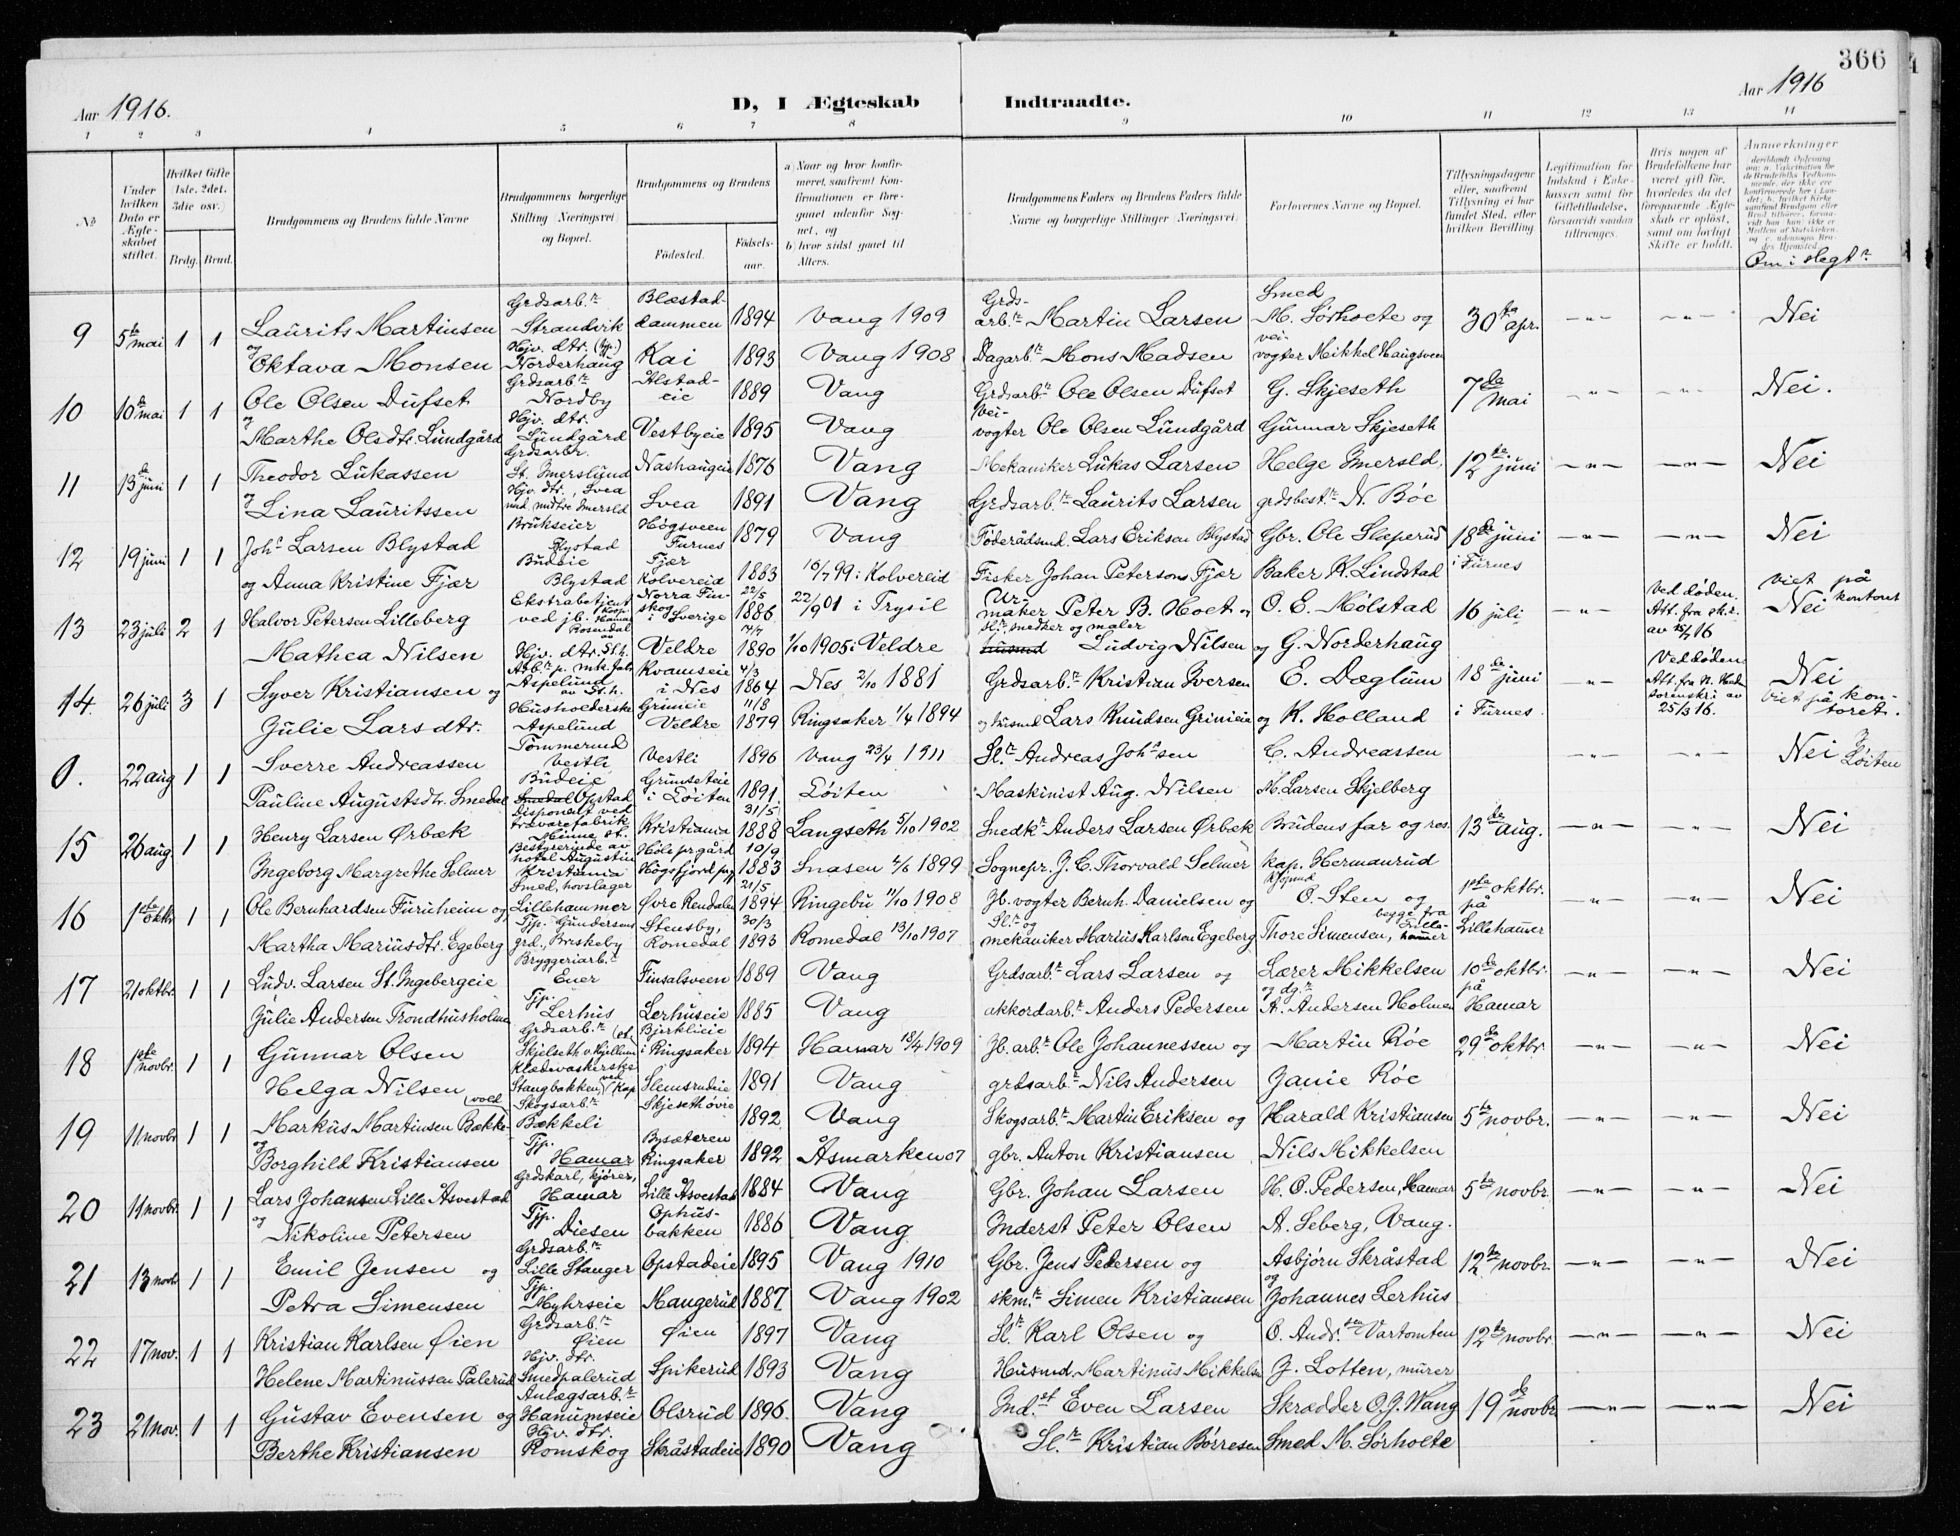 366
Aar 1916. D, I Ægteskab Indtraadte. Aar 1916
1 2 3 4 5 6 7 8 9 10 11 12 13 14
No
Under hvilken Dato er Ægteskabet stiftet.
Hvilket Gifte (1ste, 2det, 3die osv.)
Brdg. Brud.
Brudgommens og Brudens fulde Navne
Brudgommens borgerlige Stilling (Næringsvei) og Bopæl.
Brudgommens og Brudens
Fødested. Fødselsaar.
a) Naar og hvor konfirmeret, saafremt Konfirmationen er foregaaet udenfor Sognet, og
b) hvor sidst gaaet til Alters.
Brudgommens Faders og Brudens Faders fulde Navne og borgerlige Stillinger (Næringsvei).
Forlovernes Navne og Bopæl.
Tillysningsdagene eller, saafremt Tillysning ei har fundet Sted, efter hvilken Bevilling.
Legitimation for Indskud i Enkekassen samt for Giftetilladelse, forsaavidt saadan tiltrænges.
Hvis nogen af Brudefolkene har været gift før, hvorledes da det foregaaende Ægteskab er opløst, samt om lovligt Skifte er holdt.
Anmerkninger
Om i slegt
9 5te mai 1 1 Laurits Martinsen Grdsarb.r Strandvik Blæstaddammen 1894 Vang 1909 Grdsarb.r Martin Larsen Smed M. Sørhoete og 30te apr. -"- -"- Nei
og Oktava Monsen Hjv. dtr. (tjp.) Norderhaug Kai 1893 Vang 1908 Dagarb.r Mons Madsen veivogter Mikkel Haugsveen
10 10de mai 1 1 Ole Olsen Dufset Grdsarb.r Nordby Ålstadeie 1889 Vang Grdsarb.r Ole Olsen Dufset G. Skjeseth 7de mai -"- -"- Nei.
og Marthe Olsdtr. Lundgård Hjv. dtr. Lundgård Vestbyeie 1895 Vang Veivogter Ole Olsen Lundgård Gunnar Skjeseth
11 13de juni 1 1 Theodor Lukassen Grdsarbr. St. Imerslund Nashaugeie 1876 Vang Mekaniker Lukas Larsen Helge Imersld. 12te juni -"- -"- Nei
og Lina Lauritssen Hjv. dtr. Svea Svea 1891 Vang Grdsarb.r Laurits Larsen grdsbest.r N. Böe
12 19 juni 1 1 Johs Larsen Blystad Brukseier Blystad Høgsveen Furnes 1879 Vang Føderådsmd. Lars Eriksen Blystad Gbr. Ole Sleperud 18de juni -"- -"- Nei
og Anna Kristine Fjær Budeie Blystad Fjær Kolvereid 1883 16/7 99 i Kolvereid Fisker Johan Petersens Fjær Baker K. Lindstad i Furnes
13 23 juli 2 1 Halvor Petersen Lilleberg Ekstrabetjent ved jb. Norra Finskog i Sverige 22/5 1886 22/9 01 i Trysil Urmaker Peter B. Hoet og O. E. Mølstad 16 juli -"- Ved døden. Nei viet på kontoret
Mathea Nilsen Hjv. dtr. Veldre 1890 1/10 1905 i Veldre Sl.r, snedker og maler Ludvig Nilsen og G. Norderhaug
14. 26 juli 3 1 Syver Kristiansen og Aspelund Kvamseie i Nes 4/3 1864 Nes 2/10 1881 Grdsarb.r Kristian Iversen E. Dæglum 18de juni -"- Ved døden 25/3 16. Nei viet på kontoret.
Julie Larsdtr. Husholderske Aspelund Grinieie Veldre 11/8 1879 Ringsaker 1/4 1894 og husmd Lars Knudsen Grinieie og K. Holland i Furnes
0. 22 aug 1 1 Sverre Andreassen Tømmermd Vestli Vestli 1896 Vang 23/4 1911 Sl.r Andreas Johssen C. Andreassen -"- -"- Nei Løiten
Pauline Augustsdtr. Smedal Budeie Opstad Grunseteie i Løiten 1891 Løiten Maskinist Aug. Nilsen M. Larsen Skjelberg
15 26 aug. 1 1 Henry Larsen Ørbæk Disponent ved trævarefabrik Minne st. Kristiania 31/5 1888 Langseth 5/10 1902 Snedk.r Anders Larsen Ørbæk Brudens far og res. 13de aug. -"- -"- Nei
Ingeborg Margrethe Selmer Bestyrerinde av hotel Augustin Kristiania Höle prgård Högsfjord 10/9 1883 Snasen 4/6 1899 Sognepr. J. C. Thorvald Selmer kap. Hermanrud
16 1ste oktbr 1 1 Ole Bernhardsen Furuheim og Smed, hovslager Lillehammer Øvre Rendalen 21/5 1894 Ringebu 11/10 1908 Jb. vogter Bernh. Danielsen og O. Sten og 1ste oktbr. på -"- -"- Nei
Martha Mariusdtr. Egeberg Tjp. Gundersens grd., Briskeby Stensby, Romedal 30/3 1893 Romedal 13/10 1907 Sl.r og mekaniker Marius Karlsen Egeberg Thore Simensen, begge fra Lillehammer Lillehammer
17 21 oktbr. 1 1 Ludv. Larsen St. Ingebergeie Bryggeriarb.r Ener Finsalsveen 1889 Vang Grdsarb.r Lars Larsen og Lærer Mikkelsen 10de oktbr. på -"- -"- Nei
Julie Andersen Trondhusholmen Tjp. Lerhus Lerhuseie 1885 Vang akkordarb.r Anders Pedersen og dg.r A. Andersen Holmen Hamar
18 1ste novbr. 1 1 Gunnar Olsen Grdsarb.r Skjelseth v. Hjellum Bjørklieie i Ringsaker 1894 Hamar 18/4 1909 Jb. arb.r Ole Johannessen og Martin Röe 29de oktbr. -"- -"- Nei
Helga Nilsen Klædevaskerske Stangbakken Slemsrudeie 1891 Vang grdsarb.r Nils Andersen Janie Röe
19 11 novbr 1 1 Markus Martinsen Bækkevold Skogsarb.r Bækkeli Skjesethøvie 1892 Vang Skogsarb.r Martin Eriksen og Harald Kristiansen 5te novbr. -"- -"- Nei
og Borghild Kristiansen Tjp. Hamar Bysæteren Ringsaker 1892 Åsmarken 07 gbr. Anton Kristiansen Nils Mikkelsen
20 11 novbr. 1 1 Lars Johansen Lille Åsvestad Grdskarl, kjører, Hamar Lille Åsvestad 1884 Vang Gbr. Johan Larsen H. O. Pedersen, Hamar 5te novbr. -"- -"- Nei
og Nikoline Petersen Tjp. Diesen Ophusbakken 1886 Vang Inderst Peter Olsen A. Seberg, Vang.
21 13 novbr. 1 1 Emil Jensen og Grdsarb.r Lille Stanger Opstadeie 1895 Vang 1910 Gbr. Jens Pedersen og Asbjørn Skråstad 12te novbr. -"- -"- Nei
Petra Simensen Tjp. Myhrseie Mangerud 1887 Vang 1902 skm.r Simen Kristiansen og Johannes Lerhus
22 17 nov. 1 1 Kristian Karlsen Øien Grdsarb.r Øien Øien 1897 Vang Sl.r Karl Olsen og O. Andr.sen Vartomten 12te novbr. -"- -"- Nei
Helene Martinussen Palerud Hjv. dtr. Smedpalerud Spikerud 1893 Vang Husmd. Martinus Mikkelsen J. Lotten, murer
23 21 nov. 1 1 Gustav Evensen og Anlægsarb.r Hanumseie Olsrud 1896. Vang Ind.st Even Larsen Skrædder O. J. Wang 19de novbr -"- -"- Nei
Berthe Kristiansen Hjv. dtr. Romskog Skråstadeie 1890 Vang Sl.r Kristian Börresen Smed M. Sørholte